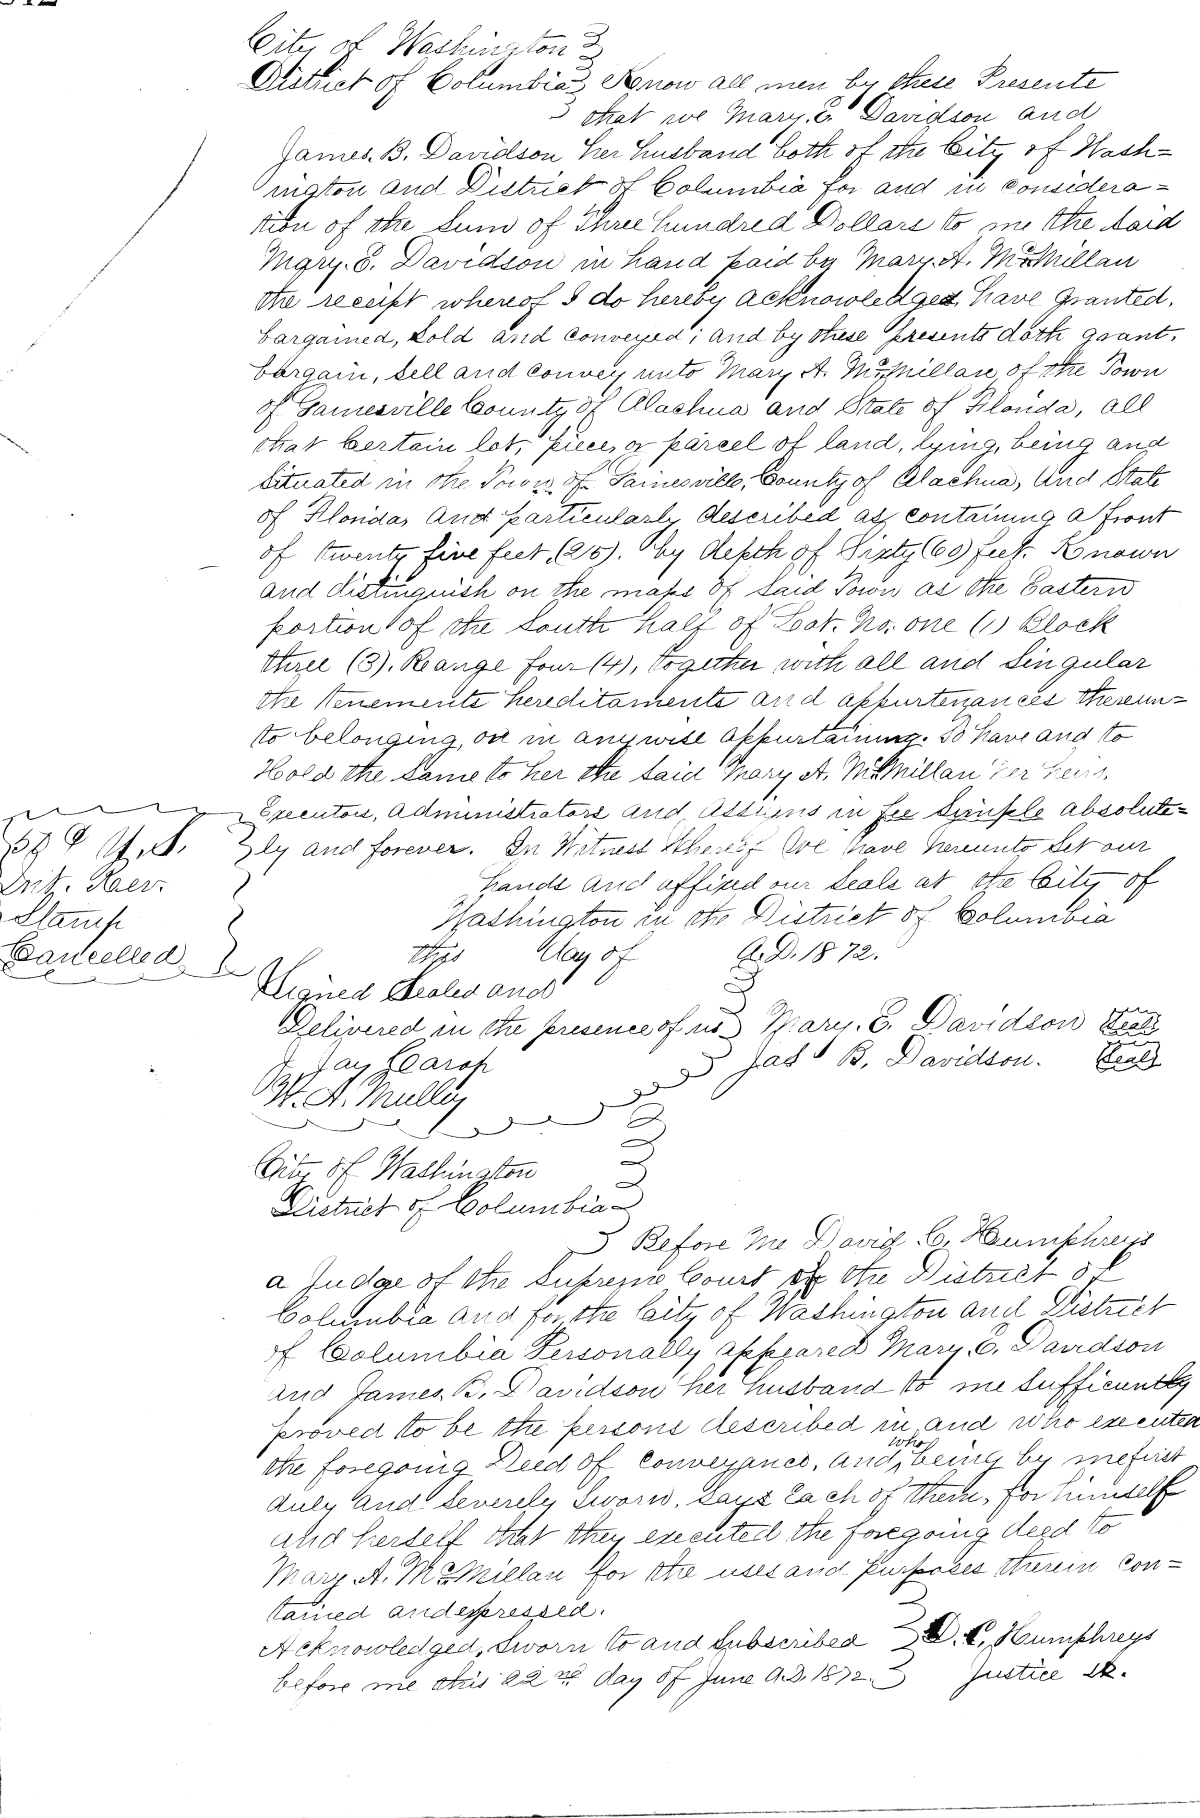 City of Washington
District of Columbia Know all men by these Presents
that we Mary. E. Davidson and
James. B. Davidson her husband both of the City of Wash=
ington and District of Columbia for and in considera=
tion of the Sum of Three hundred Dollars to me the Said
Mary. E. Davidson in hand paid by Mary. A. McMillan
the receipt whereof I do hereby acknowledged, have granted,
bargained, Sold and conveyed; and by these presents doth grant,
bargain, Sell and convey unto Mary A. McMillan, of the Town
of Gainesville County of Alachua and State of Florida, all
that Certain lot, piece, or parcel of land, lying, being and
Situated in the Town of Gainesville, County of Alachua, And State
of Florida, And particularly described as, containing a front
of twenty five feet, (25). by depth of Sixty (60) feet. Known
and distinguish on the maps of Said Town as the Eastern
portion of the South half of Lot. No. one (1) Block
three (3). Range four (4), together with all and Singular
the tenements hereditaments and appurtenances thereun=
to belonging, or in anywise appurtaining. To have and to
Hold the Same to her the Said Mary A. McMillan her heirs,
Executors, Administrators and Assigns in fee Simple absolute=
ly and forever. In Witness Whereof We have hereunto Set our
hands and affixed our Seals at the City of
Washington in the District of Columbia
this day of A.D. 1872.
U.S.
Int. Rev.
Stamp
Cancelled
Signed Sealed and
Delivered in the presence of us Mary. E. Davidson Seal
Jay Jas B. Davidson. Seal
W. A. Mulley
City of Washington
District of Columbia
Before Me David C. Humphreys
a Judge of the Supreme Court of the District of
Columbia and for the City of Washington and District
of Columbia Personally appeared Mary. E. Davidson
and James. B. Davidson her husband to me Sufficiently
proved to be the persons described in and who executed
the foregoing Deed of conveyance, and, who being by me first
duly and Severely Sworn, Says Each of them, for himself
and herself that they executed the foregoing deed to
Mary. A. McMillan for the uses and purposes therein con=
tained and expressed.
Acknowledged, Sworn to and Subscribed D. C. Humphreys
before me this 22nd day of June A.D. 1872. Justice